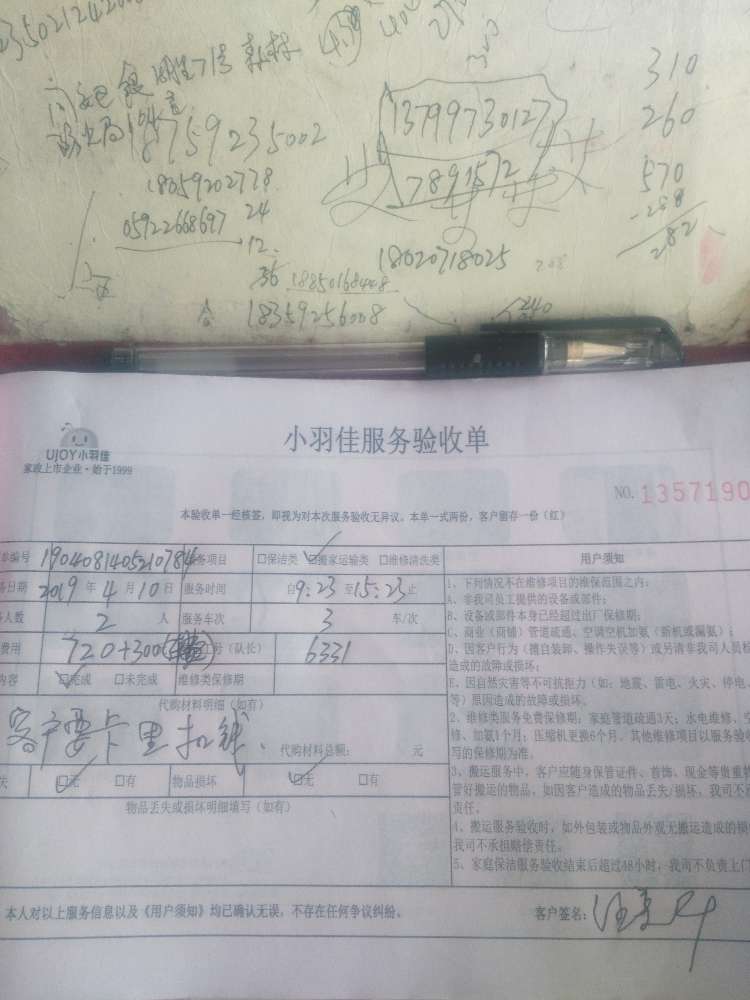 310
260
570
-288
282
13799730127
7891572
18759235002
18059202778
05922668697
24
12
36
18850168448
18020718025
18359256008
240
UJOY小羽佳
家政上市企业·始于1999
小羽佳服务验收单
NO. 1357190
本验收单一经核签，即视为对本次服务验收无异议。本单一式两份，客户留存一份（红）
单编号 190408140521078 务项目 □保洁类 ☑搬家运输类 □维修清洗类
务日期 2019 年 4 月 10 日 服务时间 自9:23 至15:23止
人数 2 人 服务车次 3 车/次
费用 720+300 工号（队长） 6331
内容 ☑完成 □未完成 维修类保修期
代购材料明细（如有）
客户要卡里扣钱. 代购材料总额： 元
失 ☑无 □有 物品损坏 ☑无 □有
物品丢失或损坏明细填写（如有）
用户须知
1、下列情况不在维修项目的维保范围之内：
A、非我司员工提供的设备或部件；
B、设备或部件本身已经超过出厂保修期；
C、商业（商铺）管道疏通、空调空机加氨（新机或漏氨）；
D、因客户行为（擅自装卸、操作失误等）或另请非我司人员检
造成的故障或损坏；
E、因自然灾害等不可抗拒力（如：地震、雷电、火灾、停电、
等）原因造成的故障或损坏。
2、维修类服务免费保修期：家庭管道疏通3天；水电维修、空
修、加氨1个月；压缩机更换6个月。其他维修项目以服务验收
写的保修期为准。
3、搬运服务中，客户应随身保管证件、首饰、现金等贵重物
管好搬运的物品，如因客户造成的物品丢失/损坏，我司不承
责任。
4、搬运服务验收时，如外包装或物品外观无搬运造成的损
我司不承担赔偿责任。
5、家庭保洁服务验收结束后超过48小时，我司不负责上门
本人对以上服务信息以及《用户须知》均已确认无误，不存在任何争议纠纷。 客户签名：